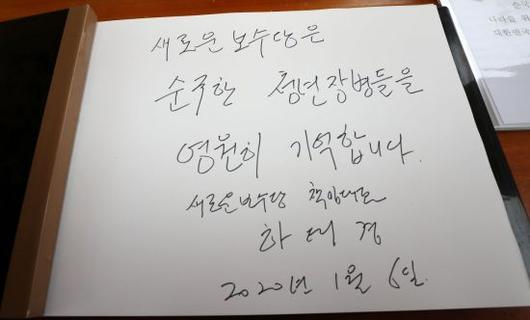 새로운 보수당은
순국한 청년장병들을
영원히 기억합니다.
새로운보수당 책임대표
하태경
2020년 1월 6일.
나라를 위
대한민국